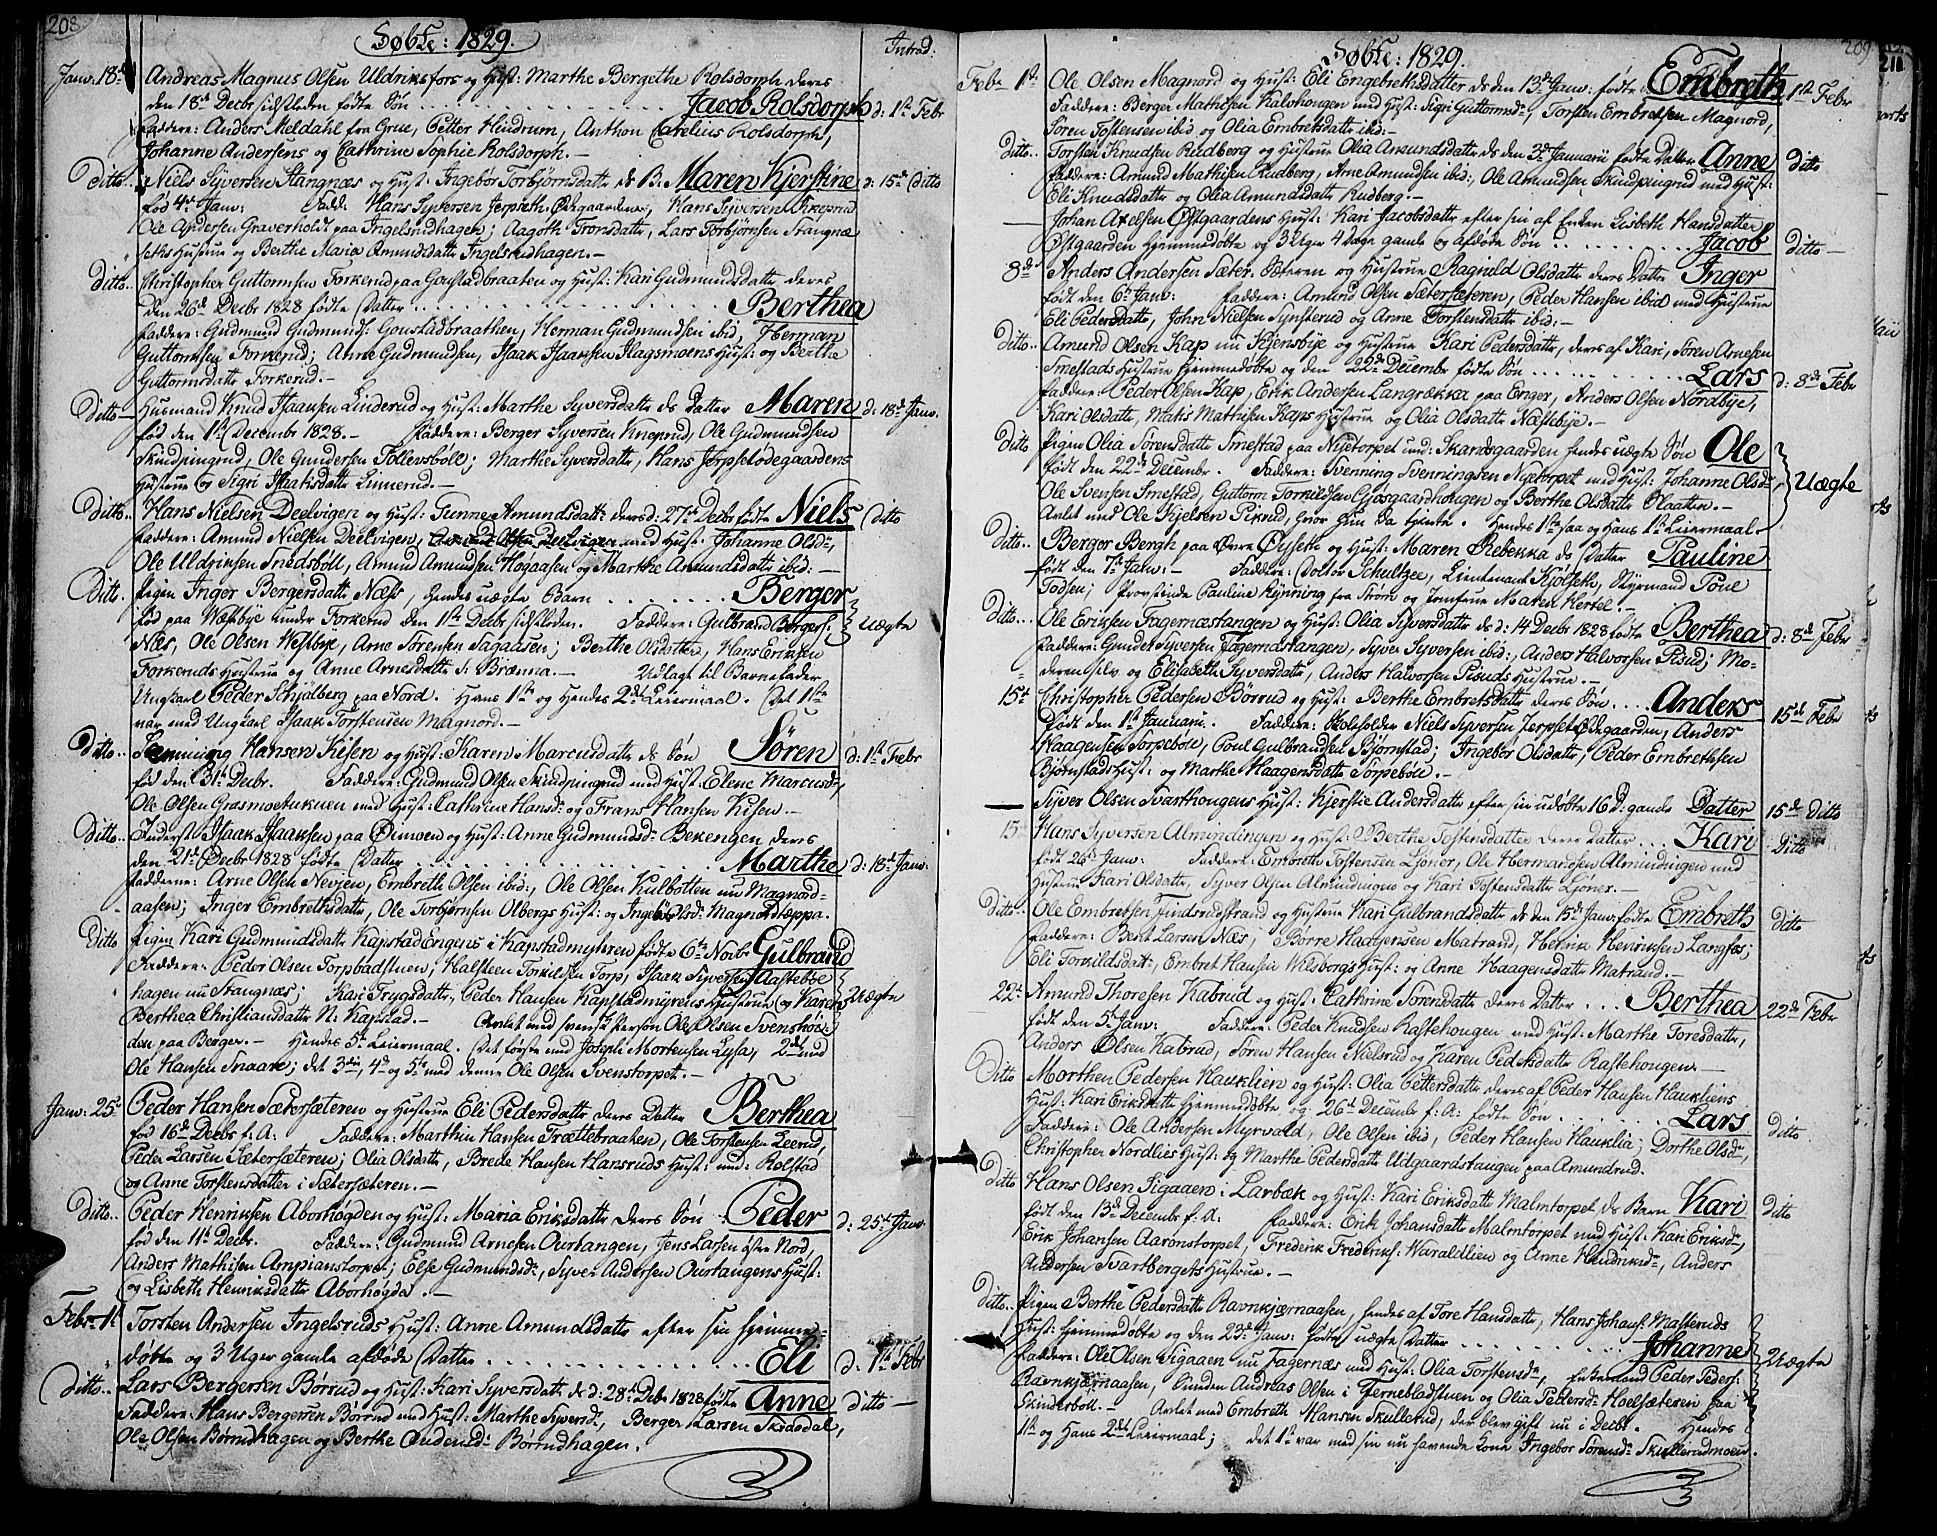 208
Døbte: 1829.
Introd.
Janv. 18de Andreas Magnus Olsen Uldriksfors og Hust: Marthe Bergethe Rolsdorph deres
den 18de Decbr sidstleden fødte Søn Jacob Rolsdorph d: 1ste Febr
Faddere: Anders Meldahl fra Grue, Petter Hindrum, Anthon Cornelius Rolsdorph,
Johanne Andersens og Cathrine Sophie Rolsdorph.-
Ditto.. Niels Syversen Stangnæs og Hust: Ingebor Torbjørnsdatte ds B: Maren Kjerstine d: 15de Ditto
fød 4de Janv: Fadd: Hans Syversen Jerpseth Ødegaarden, Hans Syversen
Ole Andersen Graverholdt paa Ingelsrudhagen; Aagoth Tronsdatte, Lars Torbjørnsen Stangnæ
seths Hustrue og Berthe Maria Amundsdatte Ingelsrudhagen.-
Ditto.. Christopher Guttormsen Forkerud paa Gonstadbraaten og Hust: Kari Gudmundsdatte deres
den 26de Decbr 1828 fødte Datter Berthea
Faddere: Gudmund Gudmunds: Gonstadbraathen, Herman Gudmundsen ibid, Herman
Guttormsen Forkerud; Anne Gudmundsen, Isaak Isaaksen Flagsmoens Hust: og Berthe
Guttormsdatte Forkerud.-
Ditto- Husmand Knud Isaaksen Linderud og Hust: Marthe Syversdatte ds Datter Maren d: 18de Janv.
fød den 1ste Decembr 1828.- Faddere: Berger Syversen Kneprud, Ole Gudmundsen
Skindpingrud, Ole Gundersen Tollevsboll; Marthe Syversdatte, Hans Jerpsetødegaardens
Hustrue og Sigri Isaaksdatte Linnerud.-
Ditto.. Hans Nielsen Deelvigen og Hust: Gunne Amundsdatte deres d: 27de Decbr fødte Niels Ditto
Faddere: Amund Nielsen Deelvigen, med Hust: Johanne Olsdr,
Ole Uldriksen Snedsboll, Amund Amundsen Hogaasen og Marthe Amundsdatte ibid:-
Ditto. Pigen Inger Bergersdatte Næss, hendes uægte Barn Berger
fød paa Westbye under Forkerud den 11te Decbr sidstleden. Faddere: Gulbrand Bergers: Uægte
Næs, Ole Olsen Westbye, Arne Sørensen Sagaasen; Berthe Olsdatter, Hans Eriksen
Forkeruds Hustrue og Anne Arnesdatte S: Brænna. Udlagt til Barnefader
Ungkarl Peder Schjølberg paa Nord. Hans 1ste og Hendes 2det Leiermaal. Det 1ste
var med Ungkarl Isaak Torstensen Magnord.-
Ditto.. Hansen Kisen og Hust: Karen Marcusdatte ds Søn Søren d: 1ste Febr
fød den 31te Decbr. Faddere: Gudmund Olsen Skindpingrud med Hust: Elene Marcusdr,
Ole Olsen Grasmoetuknen med Hust: Cathrine Hansdr og Frans Hansen Kisen.-
Ditto.. Inderst Isaak Isaaksen paa Ørmoen og Hust: Anne Gudmundsdr Bekengen deres
den 21de Decbr 1828 fødte Datter Marthe d: 18de Janv:
Fadderne: Arne Olsen Nevjen, Embreth Olsen ibid:, Ole Olsen Kulbotten nu Magnord-
aasen; Inger Embrethsdatte, Ole Torbjørnsen Olbergs Hust: og Ingebor Olsdr Magnordtræppa.
Ditto Pigen Kari Gudmundsdatte Kapstad Engens i Kapstadmyhren fødte 6te Novbr Gulbrand
Faddere: Peder Olsen Torpbadstuen; Halsteen Torkildsen Torp, Isaak Syversen Aastebøe
hagen nu Stangnæs; Kari Trygsdatte, Peder Hansen Kapstadmyrens Hustrue og Karen Uægte
Berthea Christiansdatte N: Kapstad.- Avlet med svensk Person Ole Olsen Svenshöi-
den paa Berger.- Hendes 5te Leiermaal. Det første med Joseph Mortensen Lysa, 2det med
Ole Hansen Snaare; det 3die, 4de og 5te med denne Ole Olsen Svenstorpet.-
Janv: 25de Peder Hansen Sætersæteren og Hustrue Eli Pedersdatte deres Datter Berthea
fød 16de Decbr f: A: Faddere: Marthin Hansen Trættebraaten, Ole Torstensen Leerud,
Peder Larsen Sætersæteren; Olia Olsdatte, Brede Hansen Hansruds Hust: und: Rolstad
og Anne Torstensdatter i Sætersæteren.-
Ditto.. Peder Henriksen Aborhøgden og Hust: Maria Eriksdatte deres Søn Peder d: 25de Janv.
fød den 11te Decbr. Faddere: Gudmund Arnesen Ourtangen, Jens Larsen østre Nord,
Anders Mathisen Ampianstorpet; Else Gudmundsdr, Syver Andersen Ourtangens Hust:
og Lisbeth Henriksdatte Aborhøgda.-
Febr: 1ste Torsten Andersen Ingelsruds Hust: Anne Amundsdatte efter sin hjemme-
døbte og 3 Uger gamle afdøde Datter Eli d: 1ste Febr
Ditto.. Lars Bergersen Børrud og Hust: Kari Syversdatte ds d: 28de Debr 1828 fødte Anne Ditto-
Faddere: Hans Bergersen Børrud med Hust: Marthe Syversdr, Berger Larsen Skodsdal,
Ole Olsen Børrudhagen og Berthe Børrudhagen.
209
211
Døbte: 1829.
Febr 1ste Ole Olsen Magnord og Hust: Eli Engebrethsdatter ds den 13de Janv: fødte Embreth 1ste Febr
Faddere: Berger Mathisen Kalvhougen med Hust: Sigri Guttormsdr, Torsten Embretsen Magnord,
Søren Tostensen ibid og Olia Embretsdatte ibid:-
Ditto.. Torsten Knudsen Rudberg og Hustrue Olia Amundsdatte ds den 3de Januarii fødte Datter Anne Ditto
Faddere: Amund Mathisen Rudberg, Arne Amundsen ibid:, Ole Amundsen Skindpingrud med Hust:
Eli Knudsdatte og Olia Amundsdatte Rudberg.-
- Johan Axelsen Østgaardens Hust: Kari Jacobsdatte efter sin af Enken Lisbeth Hansdatter
Østgaarden hjemmedøbte og 3 Uger 4 Dage gamle og afdøde Søn Jacob Ditto-
8de Anders Andersen Sæter Sæteren og Hustrue Ragnild Olsdatte deres Datter Inger
født den 6te Janv: Faddere: Amund Olsen Sætersæteren, Peder Hansen ibid med Hustrue
Eli Pedersdatte, John Nielsen Synsterud og Anne Torstensdatte ibid:-
Ditto.. Amund Olsen Kap nu Kjensbye og Hustrue Kari Pedersdatte, deres af Kari, Søren Arnesen
Smestads Hustrue hjemmedøbte og den 22de Decembr fødte Søn Lars d: 8de Febr
Faddere: Peder Olsen Kap, Erik Andersen Langrækka paa Enger, Anders Olsen Nordbye,
Kari Olsdatte, Mathis Mathisen Kaps Hustrue og Olia Olsdatte Næstebye.-
Ditto Pigen Olia Sørensdatte Smestad paa Nijetorpet und: Skandsgaarden hendes uægte Søn Ole
født den 22de Decembr. Faddere: Svenning Svenningsen Nijetorpet med Hust: Johanne Olsdr, Uægte
Ole Svensen Smestad, Guttorm Torkildsen Gjøsgaardhougen og Berthe Olsdatte Plaaten.-
Avlet med Ole Kjelsen Pikrud, hvor hun da tjente. Hendes 1ste saa og Hans 1ste Leiermaal-
Ditto.. Berger Bergh paa Øvre Øyseth og Hust: Maren Rebekka ds Datter Pauline
født den 7de Janv:- Faddere: Doctor Schultzee, Lieutenant Kjølseth, Styrmand Poul
Todsen; Provstinde Pauline Kynning fra Strøm og Jomfrue Maren Hertel.-
Ditto... Ole Eriksen Fagernæstangen og Hust: Olia Syversdatte ds d: 14 Decbr 1828 fødte Berthea d: 8de Febr
Faddere: Gunder Syversen Fagernæstangen, Syver Syversen ibid:, Anders Halvorsen Pisud; Mo-
deren selv og Elisabeth Syversdatte, Anders Halvorsen Pisuds Hustrue.-
15de Christopher Pedersen Børrud og Hust: Berthe Embretsdatte deres Søn Anders 15de Febr
født den 1ste Januarii. Faddere: Niels Syversen Jerpset Ødegaarden, Anders
Haagensen Torpebøe, Poul Gulbrandsen Bjørnstad; Ingebor Olsdatte, Peder Embrethsen
Bjørnstads Hust: og Marthe Haagensdatte Torpebøe.-
- Syver Olsen Svarthougens Hust: Kjerstie Andersdatte efter sin udøbte 16 D: gamle Datter 15de Ditto
15de Hans Syversen Almindingen og Hust: Berthe Tostensdatter deres Datter Kari Ditto
født 26de Janv: Faddere: Embreth Tostensen Ljøner, Ole Hermansen Almindingen med
Hustrue Kari Olsdatte, Syver Olsen Almindingen og Kari Tostensdatte Ljöner.-
Ditto.. Ole Embretsen Findsrudstrand og Hustrue Kari Gulbrandsdatte ds den 15de Janv: fødte Embreth Ditto
Faddere: Bent Larsen Næs, Børre Haagensen Matrand, Henrik Henriksen Langfos;
Eli Torkildsdatte, Embret Hansen Wilsbergs Hust: og Anne Haagensdatte Matrand.-
22de Amund Thoresen Kabrud og Hust: Cathrine Sørensdatte deres Datter Berthea 22de Febr
født den 5te Janv: Faddere: Peder Knudsen Rastehougen med Hust: Marthe Toresdatter,
Anders Olsen Kabrud, Søren Hansen Nielsrud og Karen Pedersdatte Rastehougen.-
Ditto Morthen Pedersen Hauklien og Hust: Olia Pettersdatte deres af Peder Hansen Haukliens
Hust: Kari Eriksdatte hjemmedøbte og 26de Decembr f: A: fødte Søn Lars Ditto
Faddere: Ole Andersen Myrvald, Ole Olsen ibid, Peder Hansen Hauklia; Dorthe Olsdr,
Christopher Nordlies Hust: og Marthe Pedersdatte Udgaardstangen paa Amundrud.
Ditto Hans Olsen Sigaaen i Larbæk og Hust: Kari Eriksdatte Malmtorpet ds Barn Kari Ditto
født den 13de Decembr f: A: Faddere: Erik Johansdatte Malmtorpet med Hust: Kari Eriksdr,
Erik Johansen Aaronstorpet, Frederik Frederiks: Waraldlien og Anne Hendriksdr, Anders
Andersen Svartbergets Hustrue.-
Ditto.. Pigen Berthe Pedersdatte Ravnkjærnaasen, hendes af Tore Hansdatte, Hans Johans: Masteruds
Hust: hjemmedøbte og den 23de Janv: fødte uægte Datter Johanne Uægte
Faddere: Ole Olsen Sigaaen nu Fagernæs med Hust: Olia Torstensdr, Enkemand Peder Peders:
Ravnkjærnaasen, Andreas Olsen i Fernebladstuen og Olia Pedersdr Hoelsæteren paa
Skinderboll.- Avlet med Embreth Hansen Skullerud, der blev gift nu i Decbr. Hendes
1ste og Hans 2det Leiermaal; det 1ste var med sin nu havende Kone Ingebor Sørensdr Skullerudmoen.